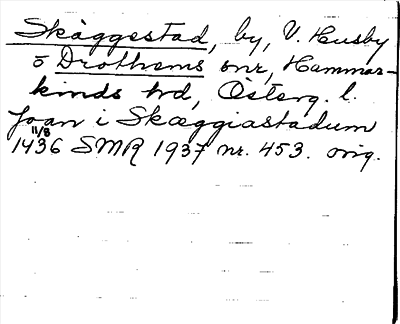 Skäggestad, by, V. Husby
o Drothems snr, Hammar-
kinds hd, Österg. l.
Joan i Skæggiastadum
11/8
1436 SMR 1937 nr. 453. orig.